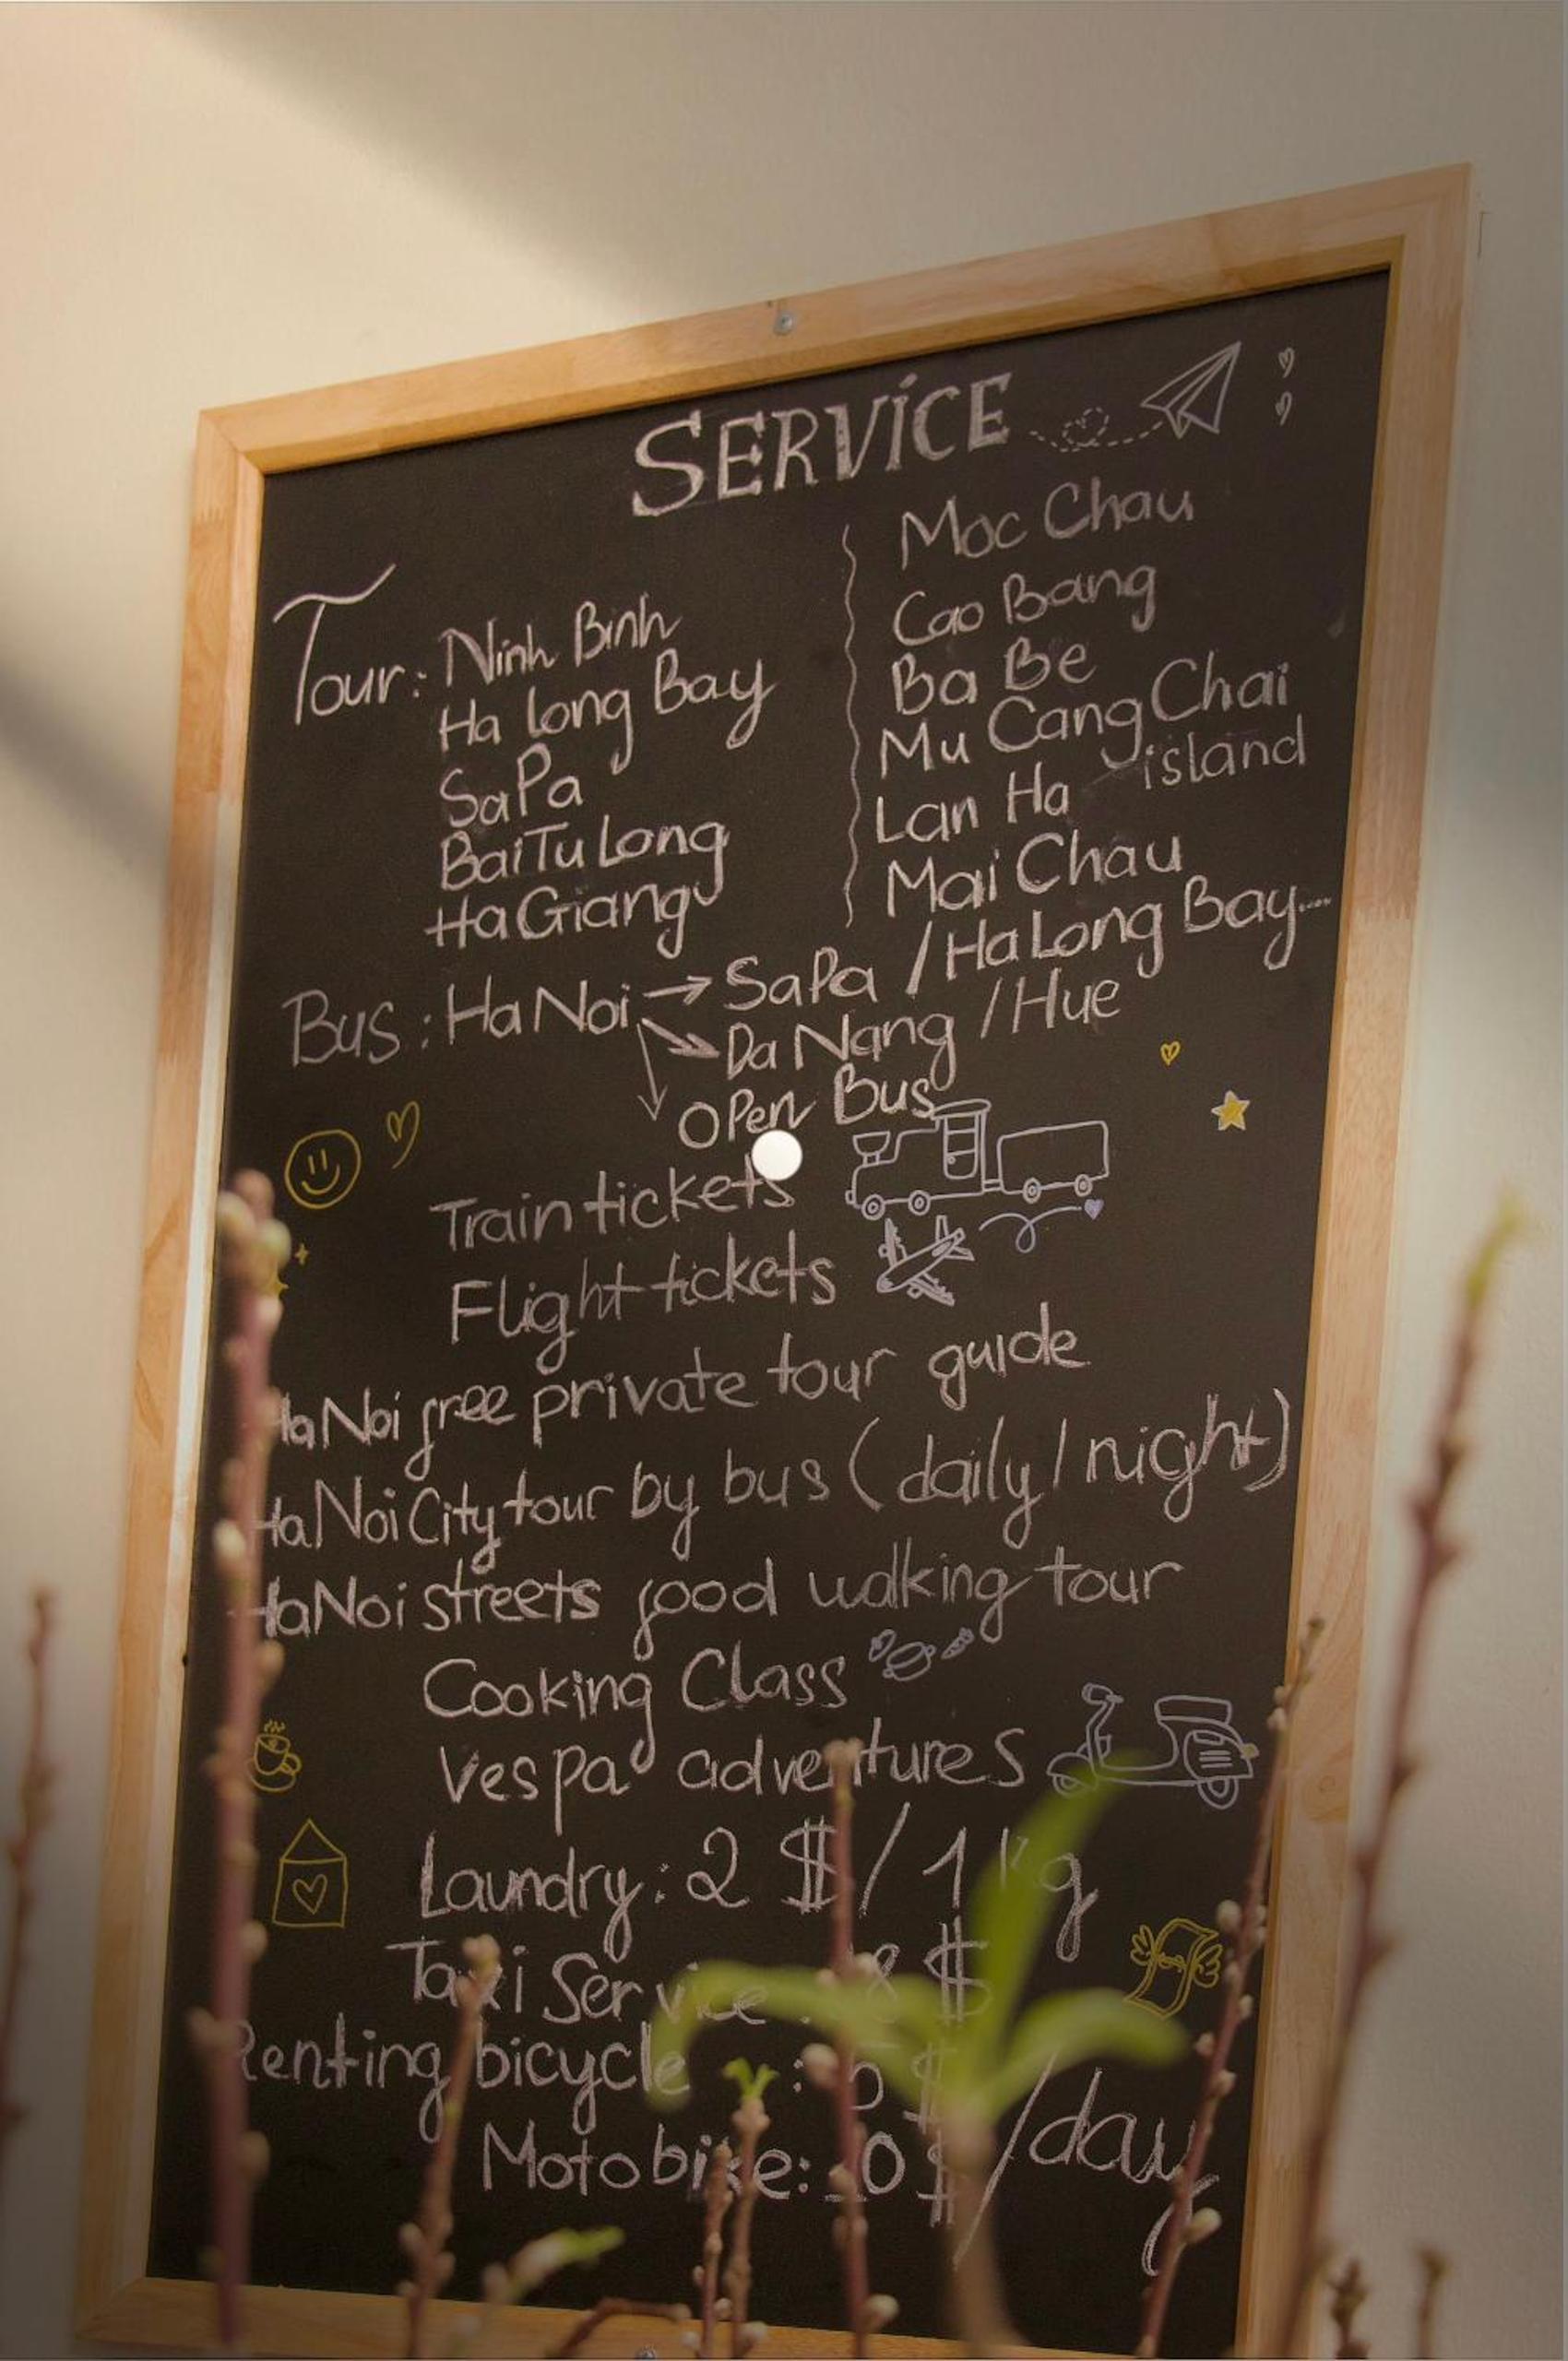 SERVICE
Tour: Ninh Binh
Ha long Bay
SaPa
BaiTu Long
Ha Giang
Moc Chau
Cao Bang
Ba Be
Mu Cang Chai
Lan Ha island
Mai Chau
Bus: Ha Noi → SaPa / Ha Long Bay...
Da Nang / Hue
OPen Bus
Train tickets
Flight tickets
HaNoi free private tour guide
HaNoi City tour by bus (daily / night)
HaNoi streets food walking tour
Cooking Class
Vespa adventures
Laundry: 2 $ / 1 Kg
Taxi Service : 8 $
Renting bicycle : $
Motobike: $ /day